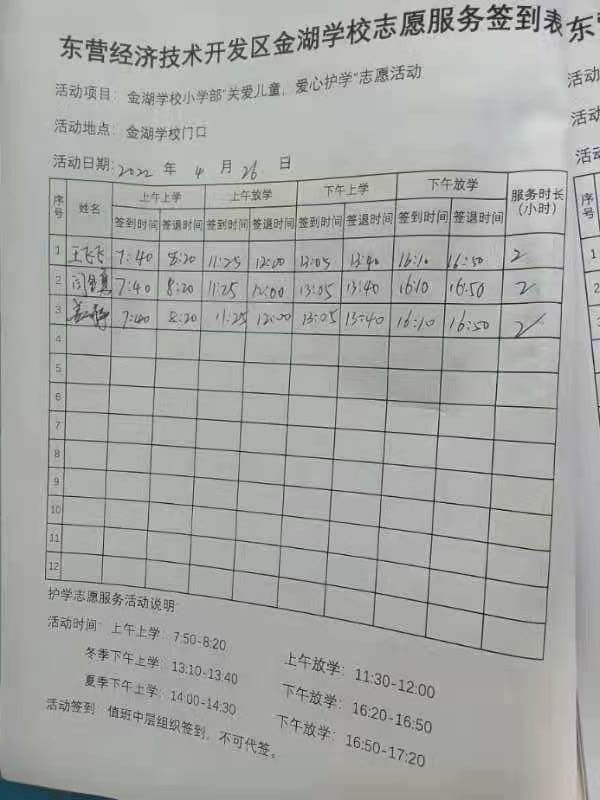 东营经济技术开发区金湖学校志愿服务签到表
活动项目：金湖学校小学部"关爱儿童，爱心护学"志愿活动
活动地点：金湖学校门口
活动日期：2022 年 4 月 26 日
序号 姓名 上午上学 上午放学 下午上学 下午放学 服务时长（小时）
签到时间 签退时间 签到时间 签退时间 签到时间 签退时间 签到时间 签退时间
1 王飞飞 7:40 8:20 11:25 12:00 13:05 13:40 16:10 16:50 2
2 7:40 8:20 11:25 12:00 13:05 13:40 16:10 16:50 2
3 7:40 8:20 11:25 12:00 13:05 13:40 16:10 16:50 2
4
5
6
7
8
9
10
11
12
护学志愿服务活动说明：
活动时间：上午上学：7:50-8:20 上午放学：11:30-12:00
冬季下午上学：13:10-13:40 下午放学：16:20-16:50
夏季下午上学：14:00-14:30 下午放学：16:50-17:20
活动签到：值班中层组织签到，不可代签。
东
活动
活动
活动
序号
1
2
3